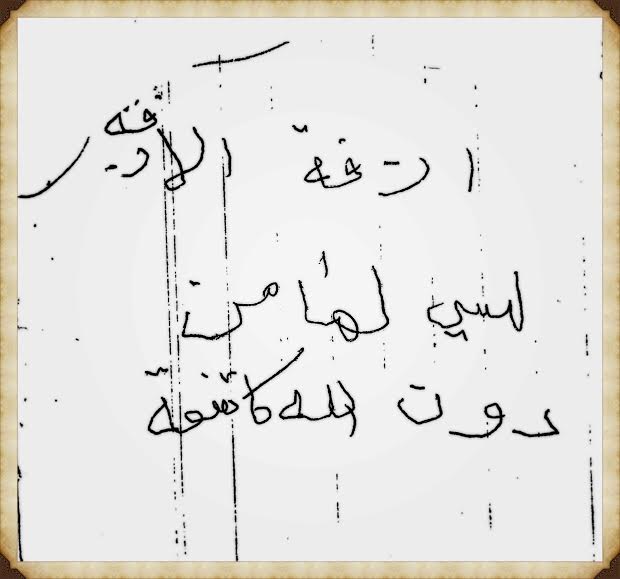 ازفة الازفه
ليسي لها من
دون الله كاشفة